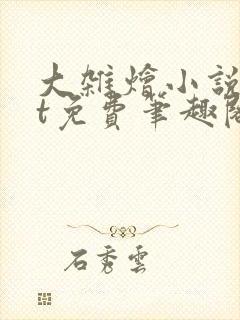 大雜燴小說
t免費筆趣閣
石秀雲